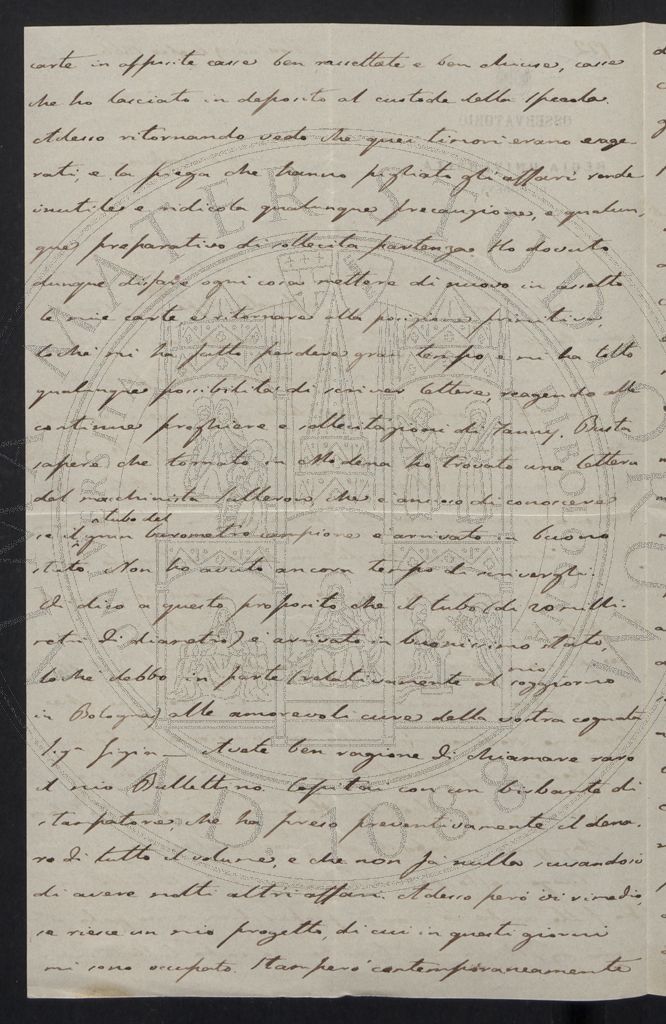 carte in apposite casse ben rassettate e ben chiuse, casse
che ho lasciato in deposito al custode della Specola.
Adesso ritornando vedo che quei timori erano esage-
rati, e la piega che hanno pigliato gli affari rende
inutile e ridicola qualunque precauzione, e qualun-
que preparativo di sollecita partenza. Ho dovuto
dunque disfare ogni cosa mettere di nuovo in assetto
le mie carte, e ritornare alla posizione primitiva,
lo che mi ha fatto perdere gran tempo e mi ha tolto
qualunque possibilità di scriver lettere, reagendo alle
continue preghiere e sollecitazioni di Fanny. Basta
sapere che tornato in Modena ho trovato una lettera
del macchinista che è ansioso di conoscere
se il tubo del gran barometro campione è arrivato in buono
stato. Non ho avuto ancora tempo di scrivergli.
Vi dico a questo proposito che il tubo (di 20 milli-
metri di diametro) è arrivato in buonissimo stato,
lo che debbo in parte (relativamente al mio soggiorno
in Bologna) alle amorevoli cure della vostra cognata
Sig.ª Gigia — Avete ben ragione di chiamare raro
il mio Bullettino. Capitai con un birbante di
stampatore, che ha preso preventivamente il dena-
ro di tutto il volume, e che non fa nulla scusandosi
di avere molti altri affari. Adesso però vi rimedio,
se riesce un mio progetto, di cui in questi giorni
mi sono occupato. Stamperò contemporaneamente
ALMA MATER STUDIORUM
UNIVERSITÀ DI BOLOGNA
A.D. 1088